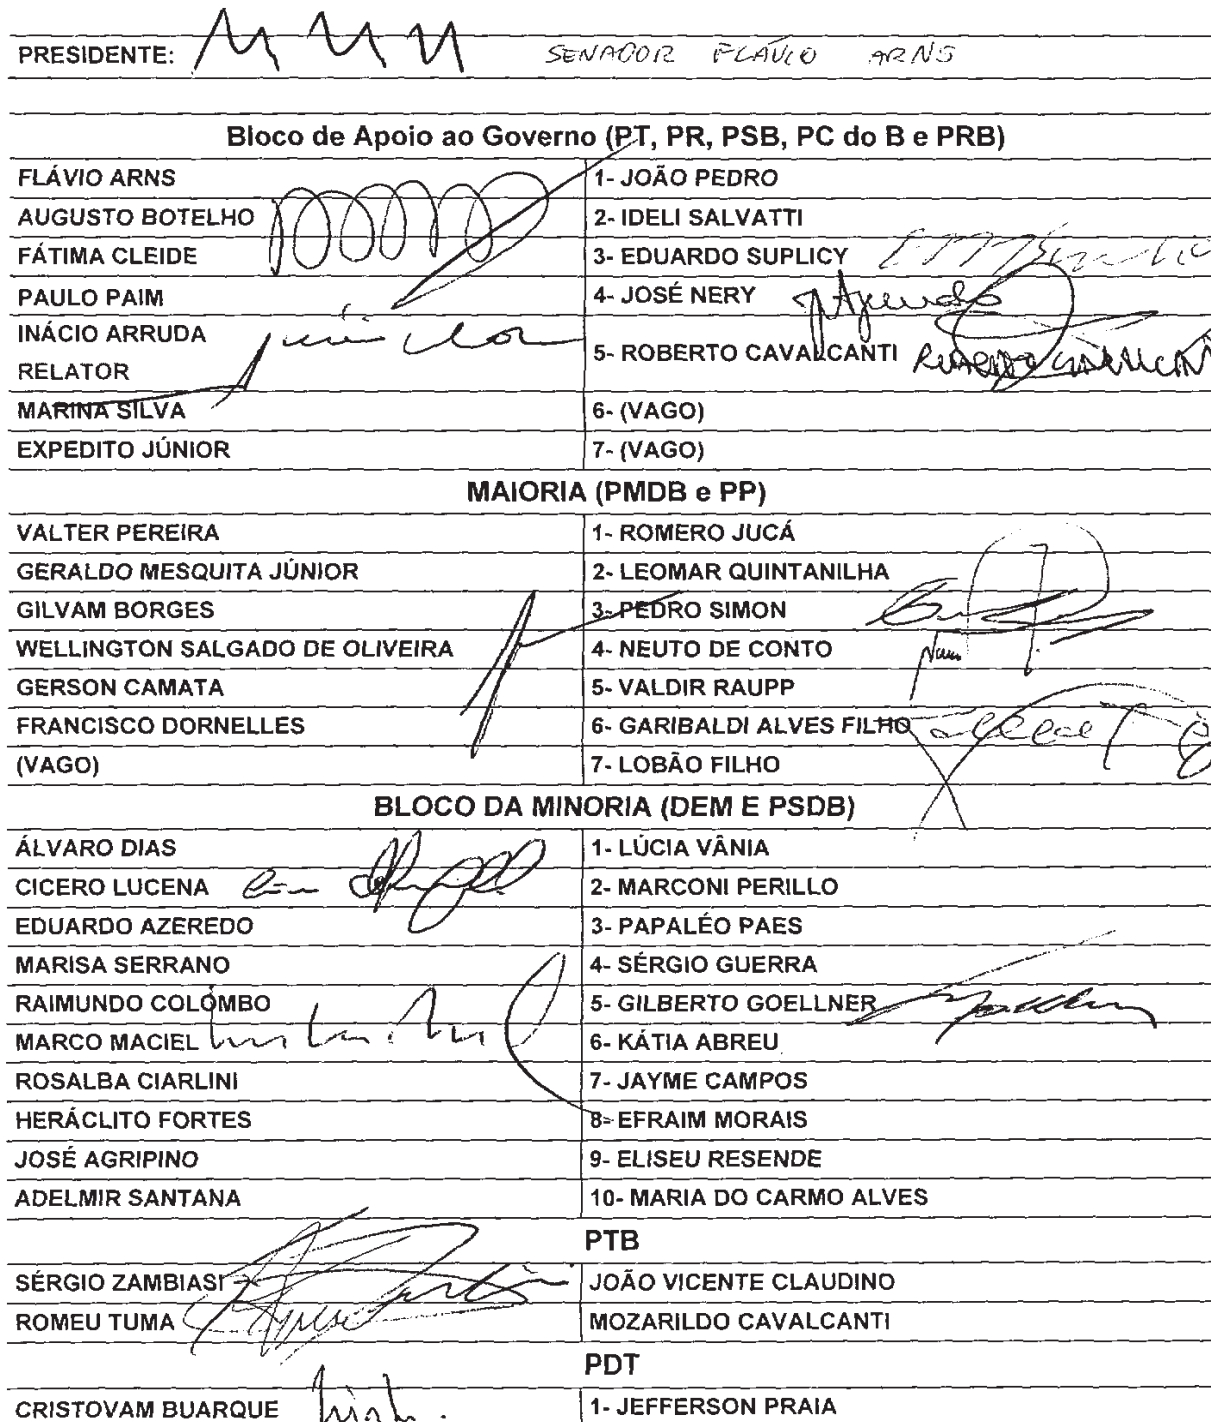 PRESIDENTE: SENADOR FLÁVIO ARNS
Bloco de Apoio ao Governo (PT, PR, PSB, PC do B e PRB)
FLÁVIO ARNS 1- JOÃO PEDRO
AUGUSTO BOTELHO 2- IDELI SALVATTI
FÁTIMA CLEIDE 3- EDUARDO SUPLICY
PAULO PAIM 4- JOSÉ NERY
INÁCIO ARRUDA
RELATOR 5- ROBERTO CAVALCANTI
MARINA SILVA 6- (VAGO)
EXPEDITO JÚNIOR 7- (VAGO)
MAIORIA (PMDB e PP)
VALTER PEREIRA 1- ROMERO JUCÁ
GERALDO MESQUITA JÚNIOR 2- LEOMAR QUINTANILHA
GILVAM BORGES 3- PEDRO SIMON
WELLINGTON SALGADO DE OLIVEIRA 4- NEUTO DE CONTO
GERSON CAMATA 5- VALDIR RAUPP
FRANCISCO DORNELLES 6- GARIBALDI ALVES FILHO
(VAGO) 7- LOBÃO FILHO
BLOCO DA MINORIA (DEM E PSDB)
ÁLVARO DIAS 1- LÚCIA VÂNIA
CICERO LUCENA 2- MARCONI PERILLO
EDUARDO AZEREDO 3- PAPALÉO PAES
MARISA SERRANO 4- SÉRGIO GUERRA
RAIMUNDO COLOMBO 5- GILBERTO GOELLNER
MARCO MACIEL 6- KÁTIA ABREU
ROSALBA CIARLINI 7- JAYME CAMPOS
HERÁCLITO FORTES 8- EFRAIM MORAIS
JOSÉ AGRIPINO 9- ELISEU RESENDE
ADELMIR SANTANA 10- MARIA DO CARMO ALVES
PTB
SÉRGIO ZAMBIASI JOÃO VICENTE CLAUDINO
ROMEU TUMA MOZARILDO CAVALCANTI
PDT
CRISTOVAM BUARQUE 1- JEFFERSON PRAIA